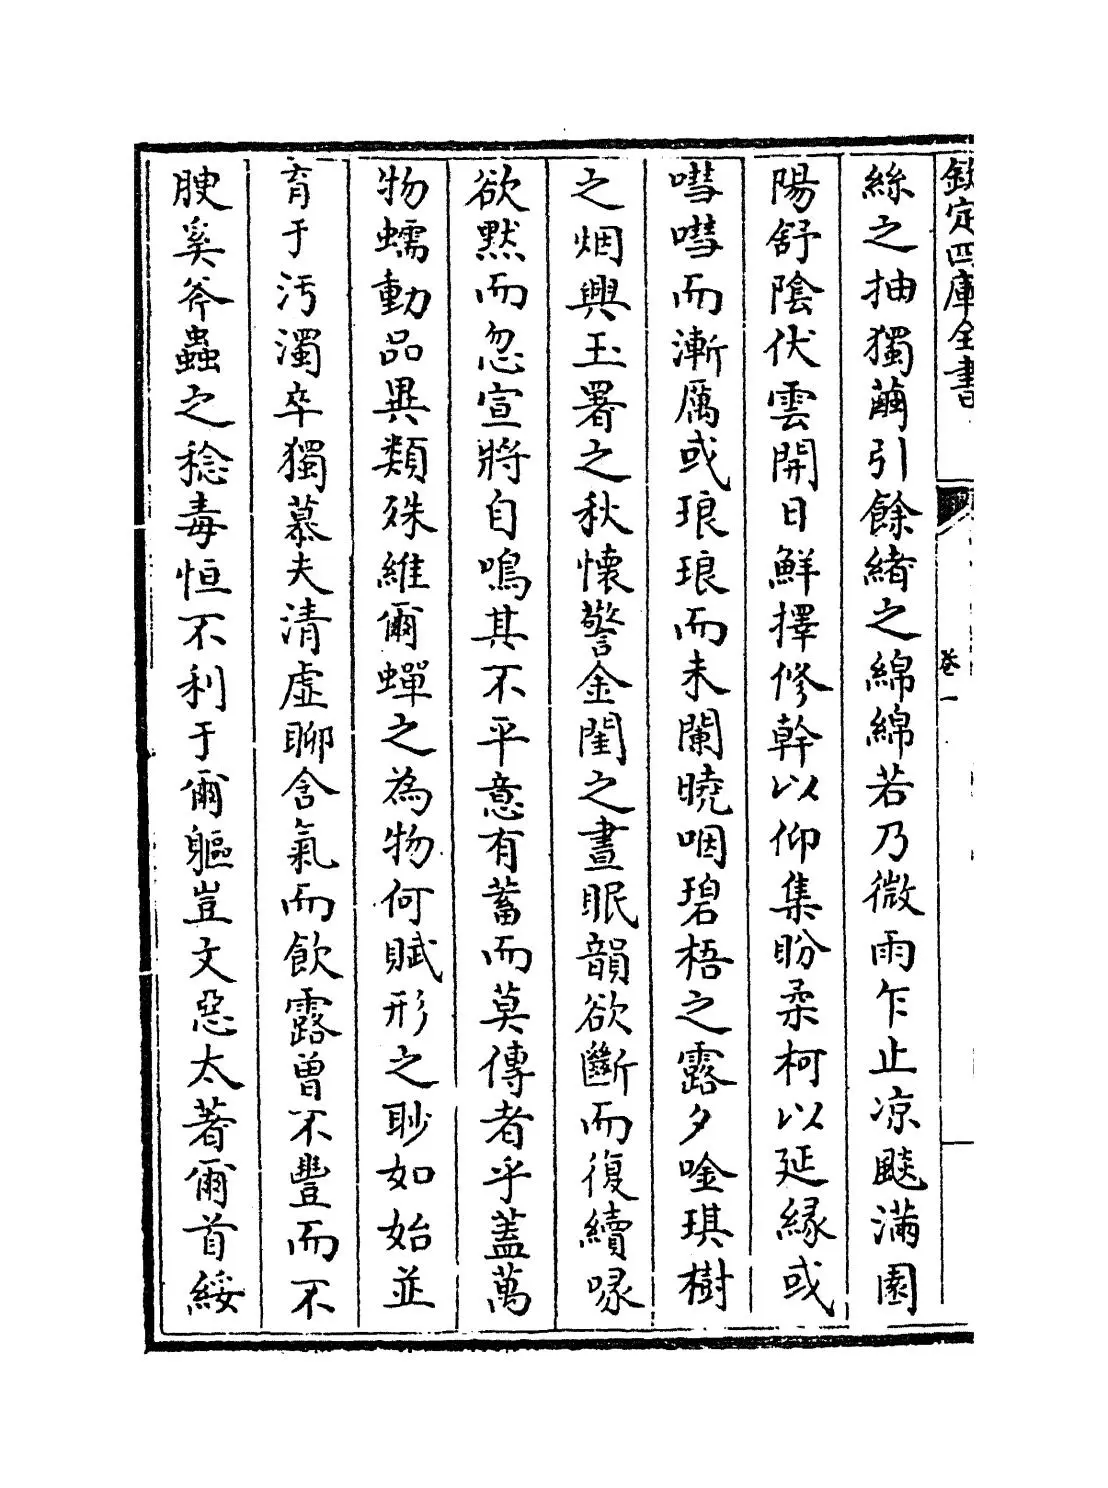 欽定四庫全書
卷一
絲之抽獨繭引餘緒之綿綿若乃微雨乍止凉颸滿園
陽舒陰伏雲開日鮮擇修幹以仰集盼柔柯以延緣或
嘒嘒而漸厲或琅琅而未闌曉咽碧梧之露夕唫琪樹
之烟興玉署之秋懷警金閨之晝眠韻欲斷而復續喙
欲默而忽宣將自鳴其不平意有蓄而莫傳者乎蓋萬
物蠕動品異類殊維爾蟬之為物何賦形之眇如始並
育于汚濁卒獨慕夫清虛聊含氣而飲露曾不豐而不
腴奚斧蟲之稔毒恒不利于爾軀豈文惡太著爾首綏